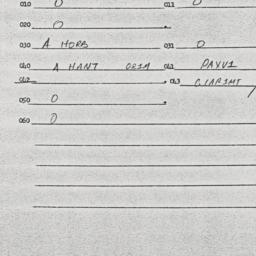 010 0 011 0
020 0
030 A HORB 031 0
040 A HANT 041 PAYVI
042 043
050 0
060 0